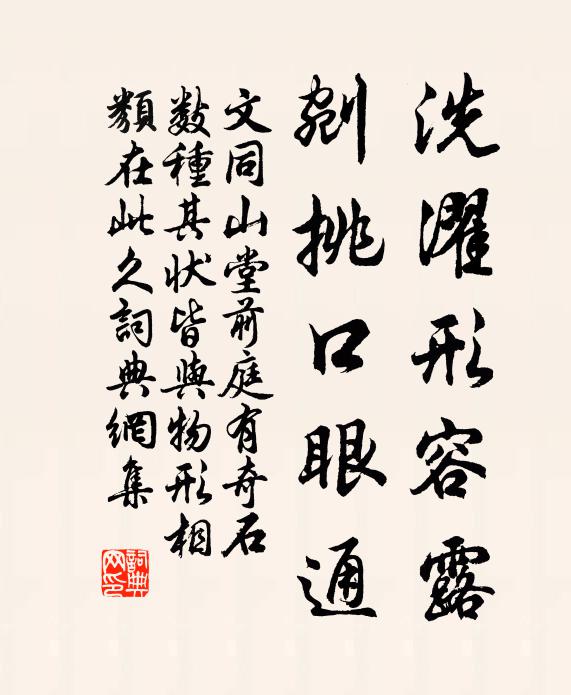 洗濯形容露
剜挑口眼通
文同山堂前庭有奇石
数種其狀皆與物形相
類在此久詞典網集
詞典网印